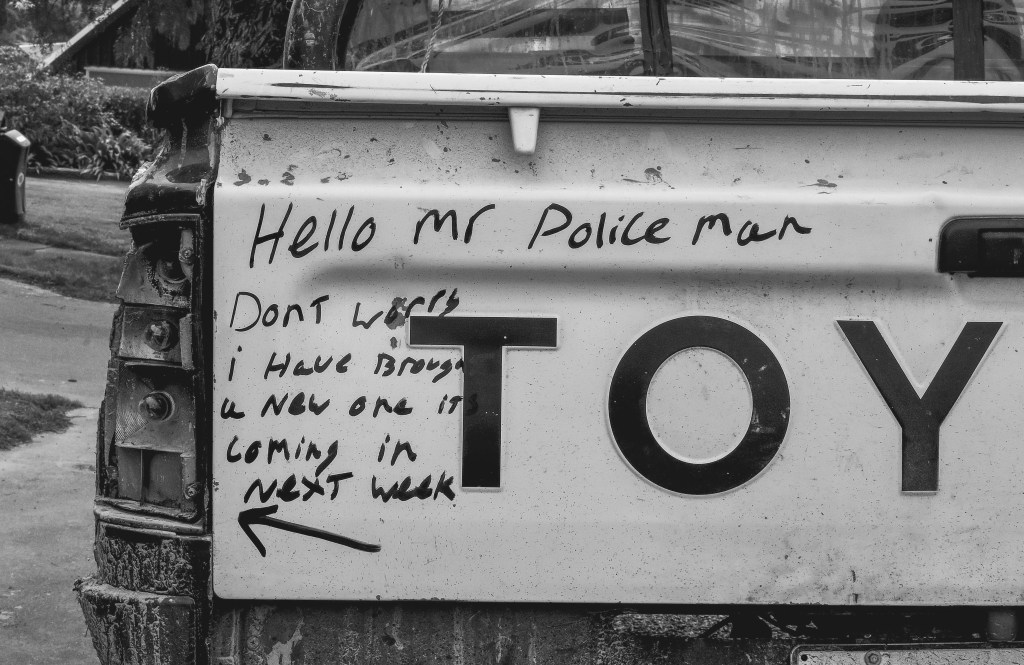 Hello Mr Police man
Dont worry
i Have Broug
a New one its
coming in
Next week
TOY